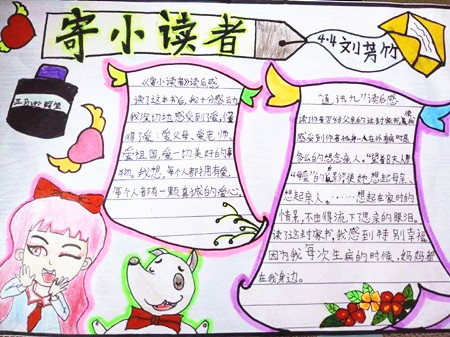 寄小读者
4.4刘芳竹
《寄小读者》读后感
读了这本书后,我十分感动,
我深切地感受到了爱,懂
得了爱:爱父母、爱老师、
爱祖国、爱一切美好的事
物。我想,每个人都拥有爱,
每个人都有一颗真诚的爱心。
"通讯九"读后感
读了作者写给父亲的这封家书,
感受到作者独身一人在外有病时是
多么的想念亲人。"望着日太人
"母爱"的 她想起母亲、
想起亲人。……想起在家时的
情景,不由得流下了思亲的眼泪。
读了这封家书,我感到特别幸福,
因为我每次生病的时候,妈妈都
在我身边。